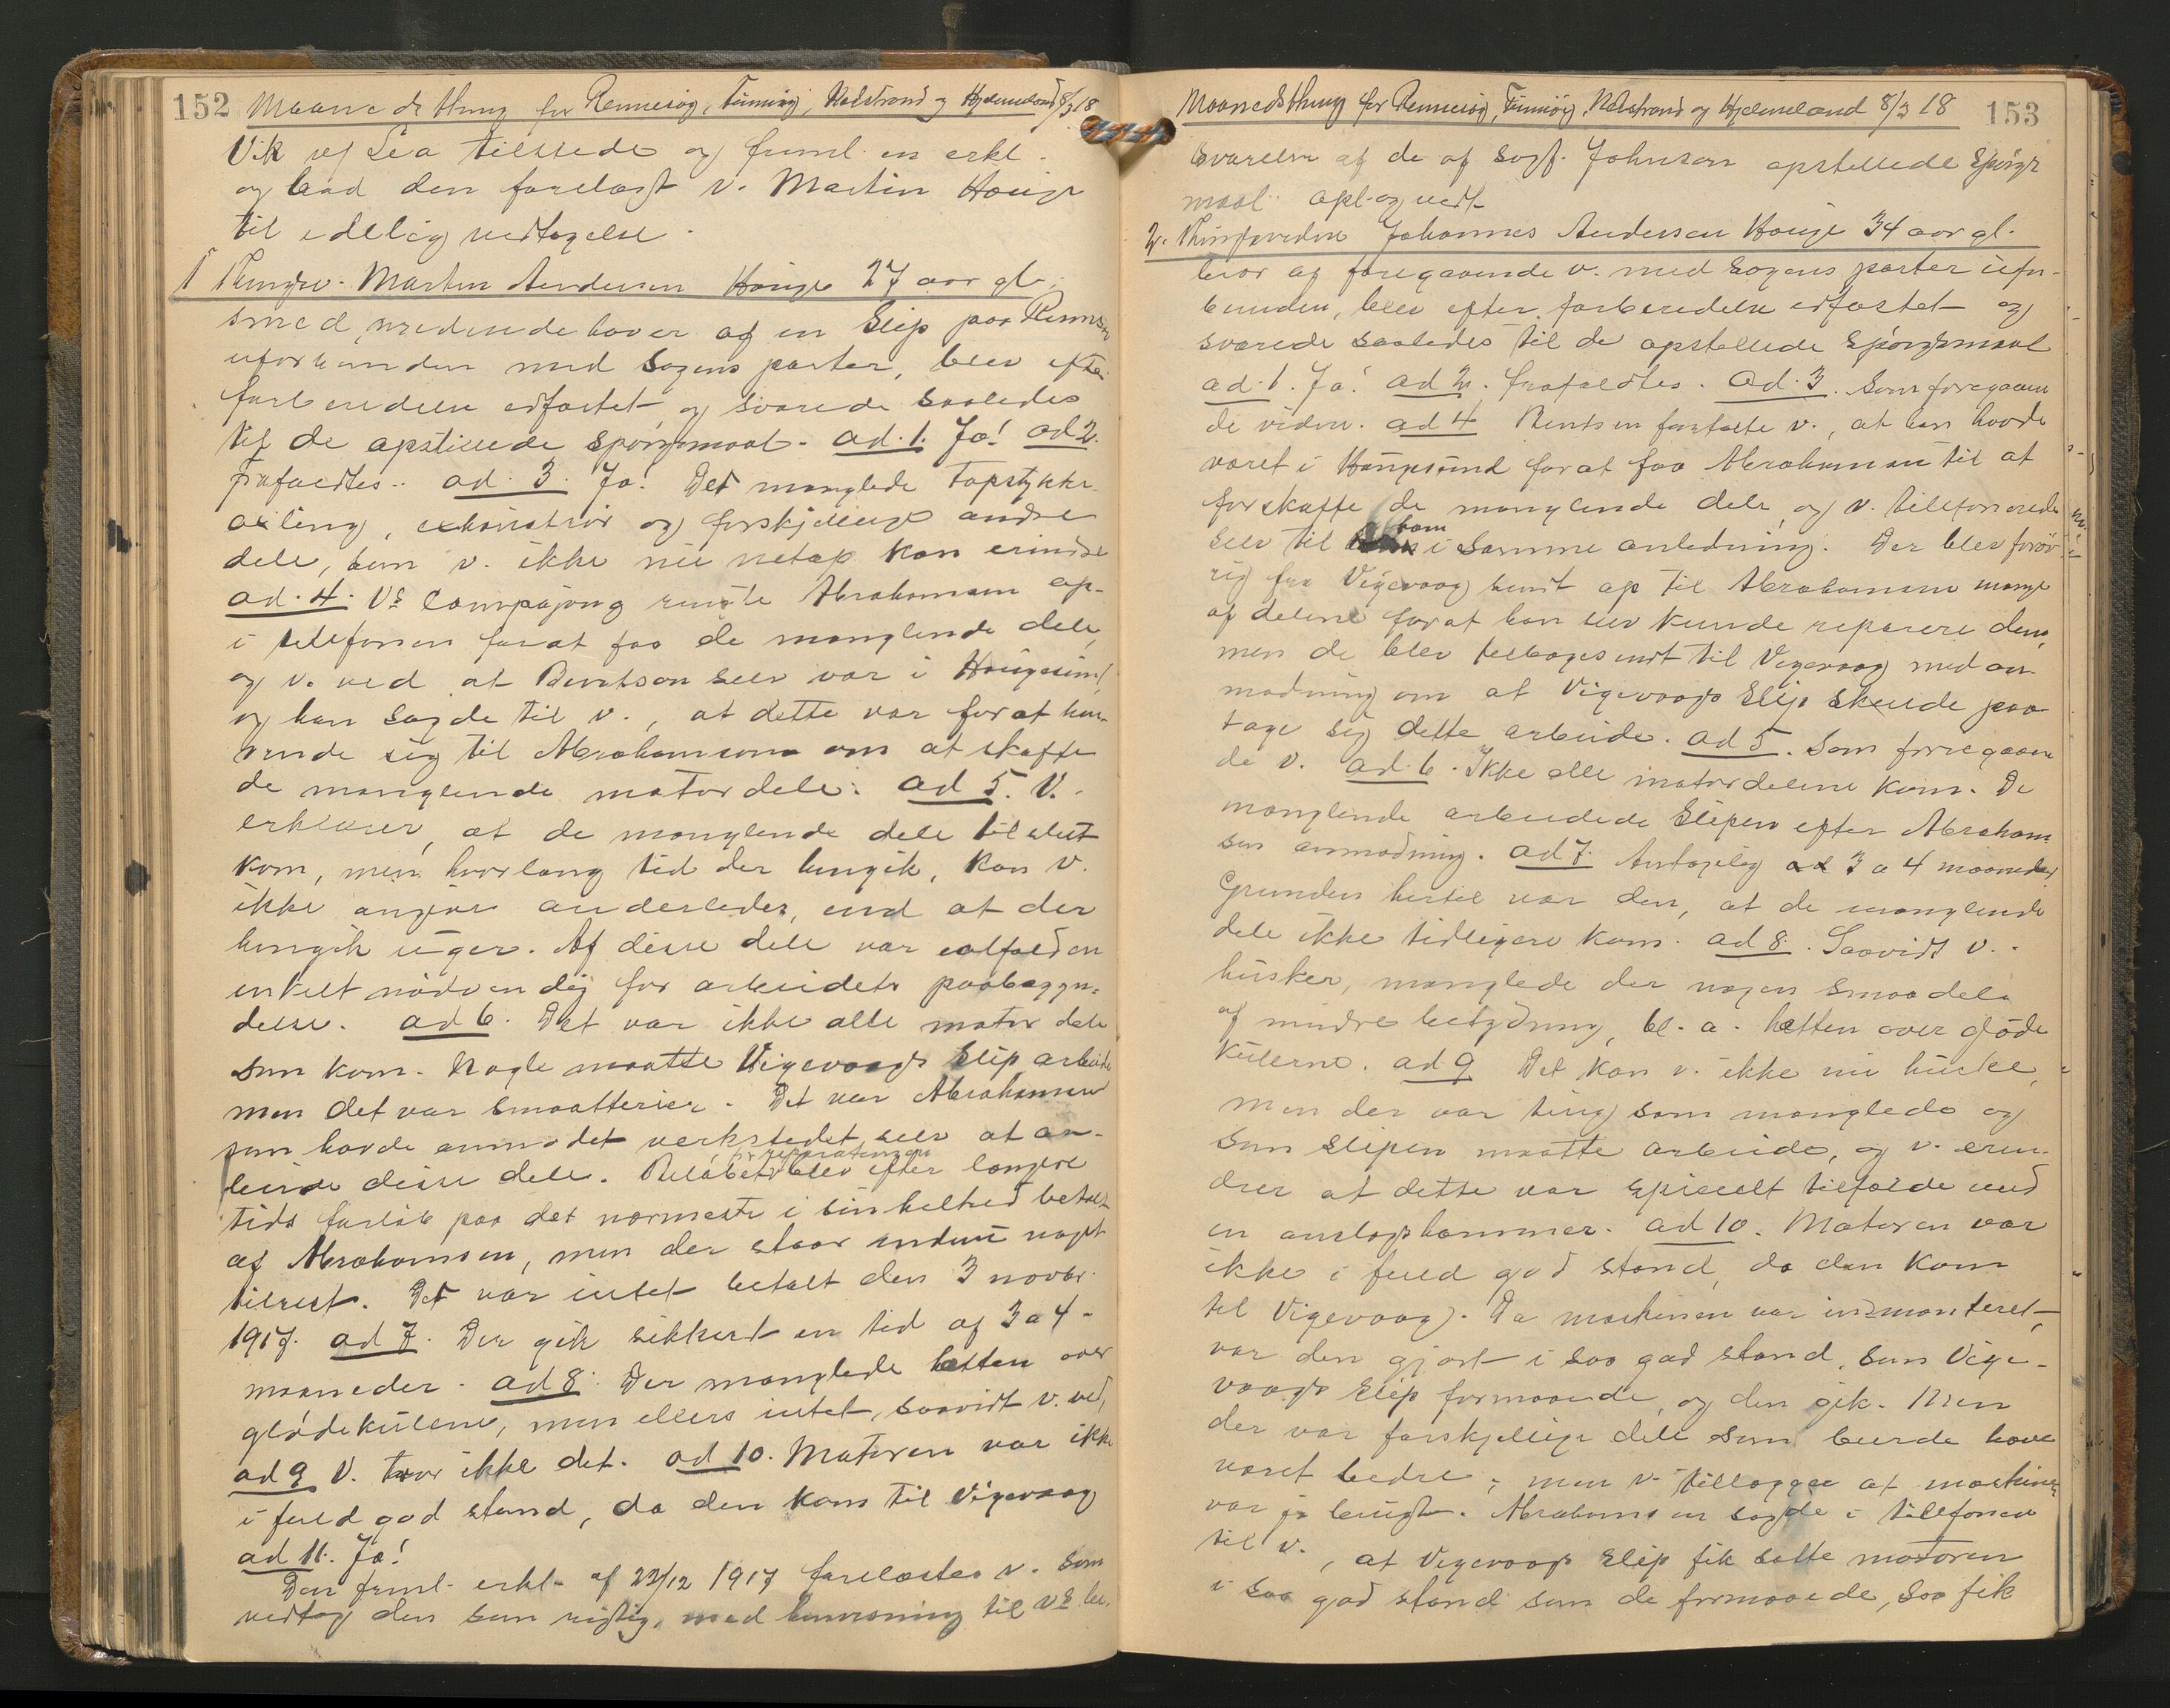 152 Maanedsthing for Rennesøy, Finnøy, Nedstrand og Hjelmeland 8/3 18
Vik og Lea tilstede og freml. en erkl.
og bad den forelæst v. Martin Hauge
til edelig vedtagelse.
1 Thingsv. Martin Andersen Hauge 27 aar gl.
smed, medindehaver af en Slip paa Rennesø
uforbunden med Sagens parter, blev efter
forberedelse edfæstet og svarede saaledes
til de opstillede spørgsmaal. ad. 1. Ja! ad 2.
frafaldtes. ad. 3. Ja! Det manglede Topstykke
axling, exhaustrør og forskjellige andre
dele, som v. ikke nu netop kan erindre
ad. 4. Vs Compagong ringte Abrahamsen op
i telefonen forat faa de manglende dele,
og v. ved at Berntsen selv var i Haugesund,
og han sagde til v., at dette var for at hen-
vende sig til Abrahamsen om at skaffe
de manglende motordele. ad 5. V.
erklærer, at de manglende dele tilslut
kom, men hvorlang tid der hengik, kan v.
ikke angive anderledes, end at der
hengik uger. Af disse dele var ialfald en
enkelt nødvendig for arbeidets paabegyn-
delse. ad 6. Det var ikke alle motordele
som kom. Nogle maatte Vigevaags Slip arbeide
men det var smaatterier. Det var Abrahamsen
som havde anmodet verkstedet selv at ar-
beide disse dele. Beløbet for reparationen blev efter længere
tids forløb paa det nærmeste i sin helhed betalt
af Abrahamsen, men der staar endnu noget
tilrest. Det var intet betalt den 3 novbr.
1917. ad 7. Der gik sikkert en tid af 3 a 4
maaneder. ad 8. Der manglede hætten over
glødekulerne, men ellers intet, saavidt v. ved,
ad 9 V. tror ikke det. ad 10. Motoren var ikke
i fuld god stand, da den kom til Vigevaag
ad 11. Ja!
Den freml. erkl. af 22/12 1917 forelæstes v. som
vedtog den som rigtig, med henvisning til vs be-
Maanedsthing for Rennesøy, Finnøy, Nedstrand og Hjelmeland 8/3 18 153
svarelse af de af sagf. Johnsen opstillede Spørgs
maal opl. og vedt.
2. Thingsvidne Johannes Andersen Hauge 34 aar gl.
bror af foregaaende v. med Sagens parter ufor-
bunden, blev efter forberedelse edfæstet og
svarede saaledes til de opstillede Spørgsmaal
ad. 1. Ja! ad 2. frafaldtes. ad. 3. Som foregaaen
de vidne. ad 4 Berntsen fortalte v., at han havde
været i Haugesund forat faa Abrahamsen til at
forskaffe de manglende dele, og v. telefonerede
selv til ham i samme anledning. Der blev forøv-
rig fra Vigevaag sendt op til Abrahamsen mange
af delene forat han selv kunde reparere dem,
men de blev tilbagesendt til Vigevaag med an-
modning om at Vigevaags Slip skulde paa-
tage sig dette arbeide. ad 5. Som foregaaen
de v. ad. 6. Ikke alle motordelene kom. De
manglende arbeidede Slipen efter Abraham
sen anmodning. ad 7. Antagelig 3 a 4 maaneder
Grunden hertil var den, at de manglende
dele ikke tidligere kom. ad 8. Saavidt v.
husker, manglede der nogen smaadele
af mindre betydning, bl. a. hætten over gløde
kulerne. ad 9 Det kan v. ikke nu huske,
men der var ting som manglede og
som slipen maatte arbeide, og v. erin-
drer at dette var specielt tilfælde med
en anslagshammer. ad 10. Motoren var
ikke i fuld god stand, da den kom
til Vigevaag. Da maskinen var indmonteret,
var den gjort i saa god stand, som Vige-
vaags Slip formaaede, og den gik. Men
der var forskjellige dele som burde have
været bedre; men v. tillægger at maskinen
var jo brugt. Abrahamsen sagde i telefonen
til v., at Vigevaags Slip fik sætte motoren
i saa god stand som de formaaede, saa fik